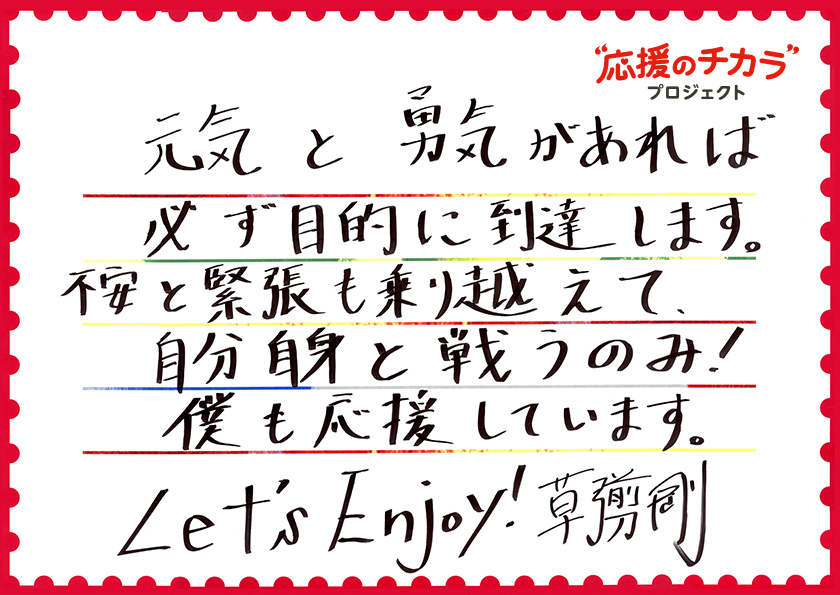 “応援のチカラ”
プロジェクト
元気と勇気があれば
必ず目的に到達します。
不安と緊張も乗り越えて、
自分自身と戦うのみ!
僕も応援しています。
Let's Enjoy! 草彅剛